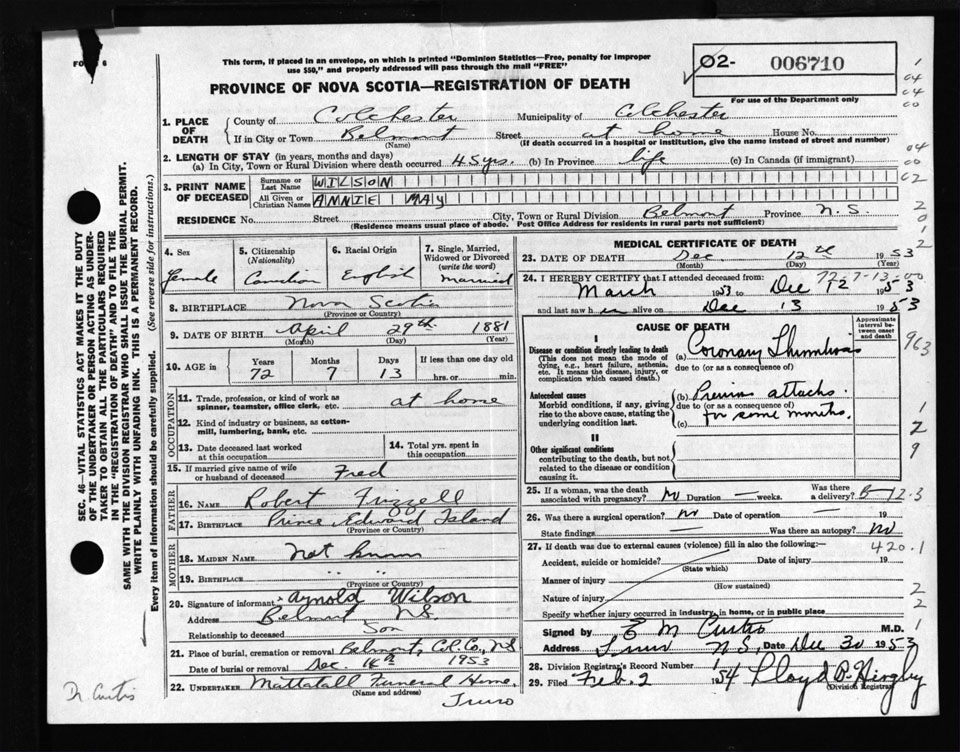 FORM 6
This form, if placed in an envelope, on which is printed "Dominion Statistics—Free, penalty for improper
use $50," and properly addressed will pass through the mail "FREE"
02- 006710
For use of the Department only
PROVINCE OF NOVA SCOTIA—REGISTRATION OF DEATH
1. PLACE OF DEATH
County of Colchester Municipality of Colchester
If in City or Town Belmont Street at home House No.
(Name) (If death occurred in a hospital or institution, give the name instead of street and number)
2. LENGTH OF STAY (in years, months and days)
(a) In City, Town or Rural Division where death occurred 45 yrs. (b) In Province life (c) In Canada (if immigrant)
3. PRINT NAME OF DECEASED
Surname or Last Name WILSON
All Given or Christian Names ANNIE MAY
RESIDENCE No. Street City, Town or Rural Division Belmont Province N.S.
(Residence means usual place of abode. Post Office Address for residents in rural parts not sufficient)
4. Sex
Female
5. Citizenship (Nationality)
Canadian
6. Racial Origin
English
7. Single, Married, Widowed or Divorced (write the word)
Married
8. BIRTHPLACE Nova Scotia
(Province or Country)
9. DATE OF BIRTH April 29th 1881
(Month) (Day) (Year)
10. AGE in Years Months Days If less than one day old
72 7 13 hrs. or min.
OCCUPATION
11. Trade, profession, or kind of work as
spinner, teamster, office clerk, etc. at home
12. Kind of industry or business, as cotton-
mill, lumbering, bank, etc.
13. Date deceased last worked
at this occupation
14. Total yrs. spent in
this occupation
15. If married give name of wife
or husband of deceased Fred
FATHER
16. NAME Robert Frizzell
17. BIRTHPLACE Prince Edward Island
(Province or Country)
MOTHER
18. MAIDEN NAME Not known
19. BIRTHPLACE " "
(Province or Country)
20. Signature of informant Arnold Wilson
Address Belmont N.S.
Relationship to deceased Son
21. Place of burial, cremation or removal Belmont, Col. Co., N.S
Date of burial or removal Dec. 14th 1953
22. UNDERTAKER Mattatall Funeral Home,
(Name and address)
Truro
MEDICAL CERTIFICATE OF DEATH
23. DATE OF DEATH Dec 12th 1953
(Month) (Day) (Year)
72-7-13-00
24. I HEREBY CERTIFY that I attended deceased from:
March 1953 to Dec 12 1953
and last saw her alive on Dec 13 1953
CAUSE OF DEATH
Approximate interval between onset and death
I
Disease or condition directly leading to death
(This does not mean the mode of
dying, e.g., heart failure, asthenia,
etc. It means the disease, injury, or
complication which caused death.)
(a) Coronary Thrombosis
due to (or as a consequence of)
Antecedent causes
Morbid conditions, if any, giving
rise to the above cause, stating the
underlying condition last.
(b) Previous attacks
due to (or as a consequence of)
for some months.
(c)
II
Other significant conditions
contributing to the death, but not
related to the disease or condition
causing it.
25. If a woman, was the death
associated with pregnancy? No Duration — weeks. Was there a delivery?
26. Was there a surgical operation? No Date of operation — 19
State findings — Was there an autopsy? No
27. If death was due to external causes (violence) fill in also the following:— 420.1
Accident, suicide or homicide? Date of injury 19
(State which)
Manner of injury
(How sustained)
Nature of injury
Specify whether injury occurred in industry, in home, or in public place
Signed by E M Curtis M.D.
Address Truro N.S. Date Dec 30 1953
28. Division Registrar's Record Number 1
29. Filed Feb. 2 1954 Lloyd B. Higby
(Division Registrar)
SEC. 46—VITAL STATISTICS ACT MAKES IT THE DUTY
OF THE UNDERTAKER OR PERSON ACTING AS UNDER-
TAKER TO OBTAIN ALL THE PARTICULARS REQUIRED
IN THE "REGISTRATION OF DEATH" AND TO FILE THE
SAME WITH THE DIVISION REGISTRAR WHO SHALL ISSUE THE BURIAL PERMIT.
WRITE PLAINLY WITH UNFADING INK. THIS IS A PERMANENT RECORD.
Every item of information should be carefully supplied. (See reverse side for instructions.)
Dr Curtis
1
04
04
00
04
00
02
2
0
1
2
963
1
2
9
2
2
1